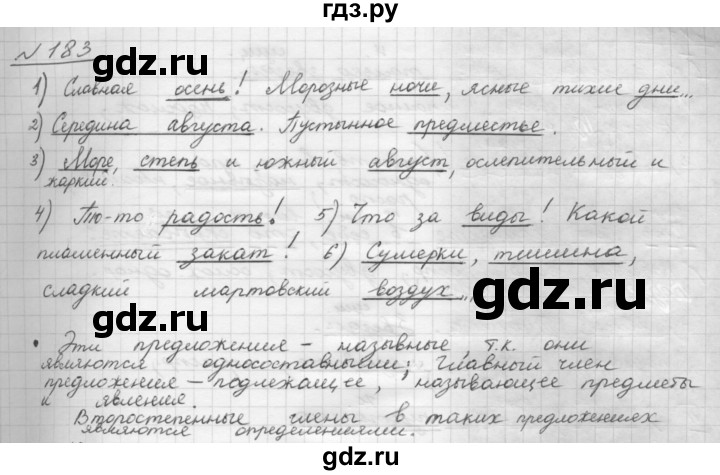 гдз.ру
№183
gdz.ru
gdz.ru
1) Славная осень! Морозные ночи, ясные тихие дни...
2) Середина августа. Пустынное предместье.
3) Море, степь и южный август, ослепительный и
жаркий.
4) То-то радость! 5) Что за виды! Какой
gdz.ru
пламенный закат! 6) Сумерки, тишина,
gdz.ru
сладкий мартовский воздух...
• Эти предложения – назывные, т.к. они
являются односоставными; Главный член
предложения – подлежащее, называющее предметы
и явления.
Второстепенные члены в таких предложениях
являются определениями.
gdz.ru
gdz.ru